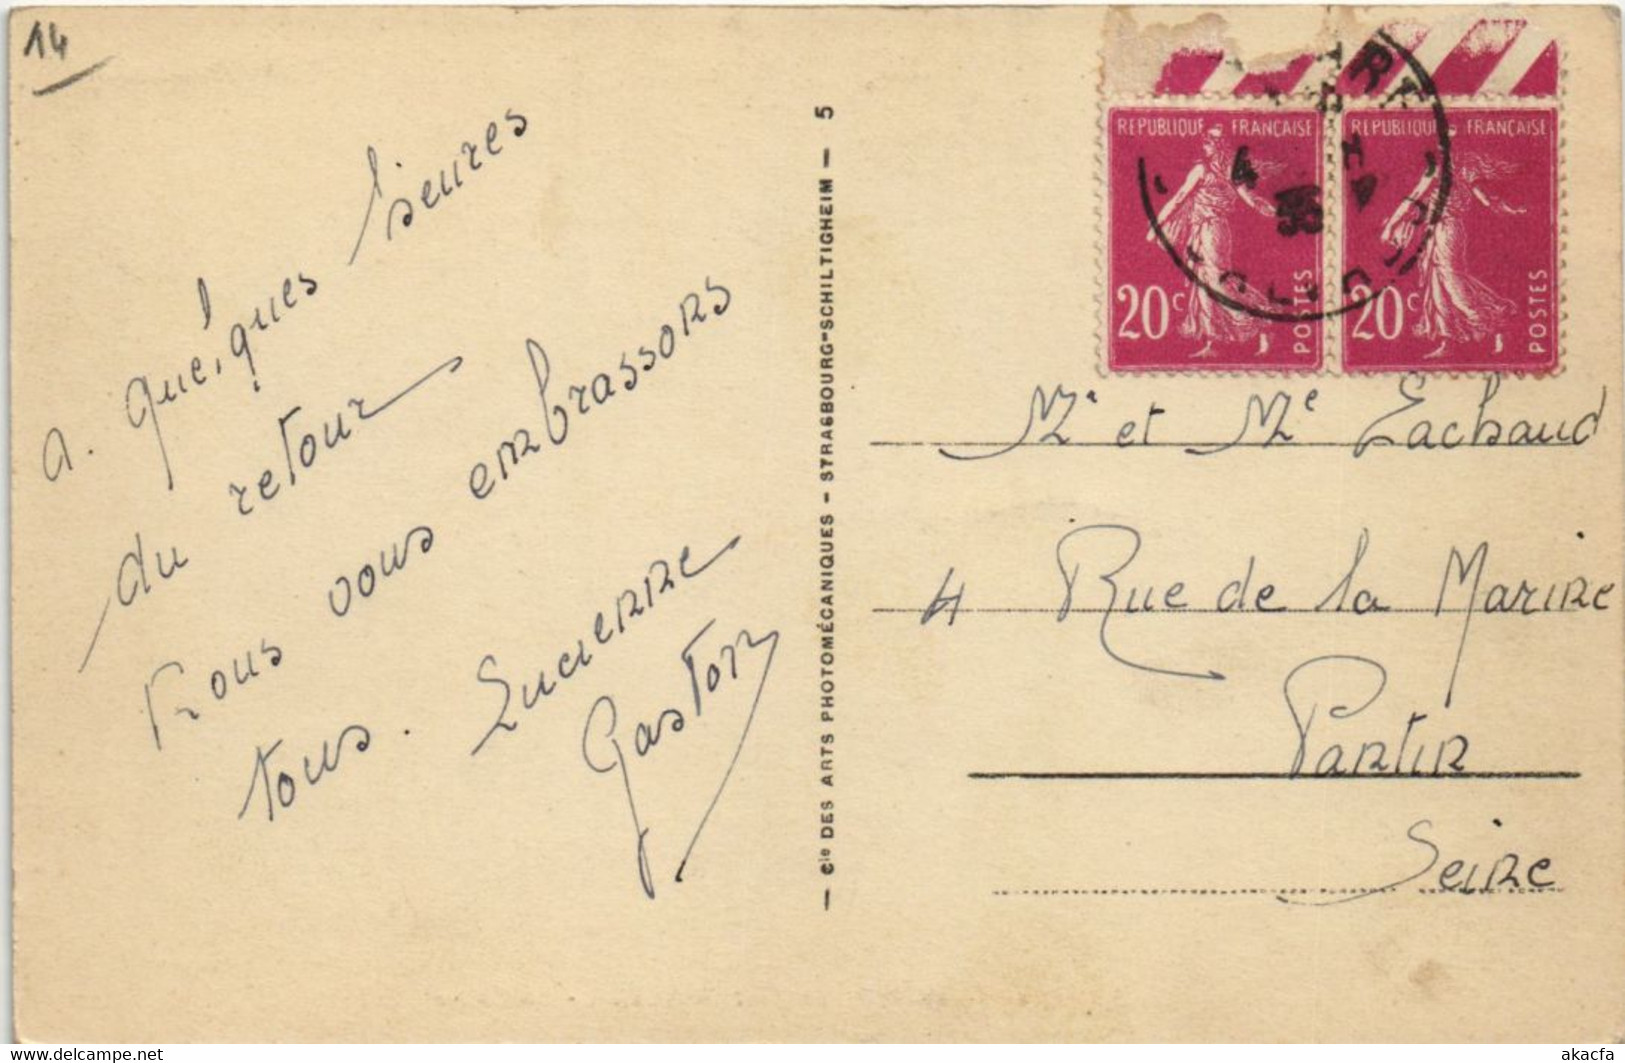 14
A. quelques heures
du retour
Nous vous embrassons
tous. Lucienne
Gaston
Cie DES ARTS PHOTOMÉCANIQUES - STRASBOURG-SCHILTIGHEIM - 5
REPUBLIQUE FRANÇAISE
20c POSTES
REPUBLIQUE FRANÇAISE
20c POSTES
4
35
Mr et Me Lachaud
4 Rue de la Marine
Pantin
Seine
www.delcampe.net
akacfa